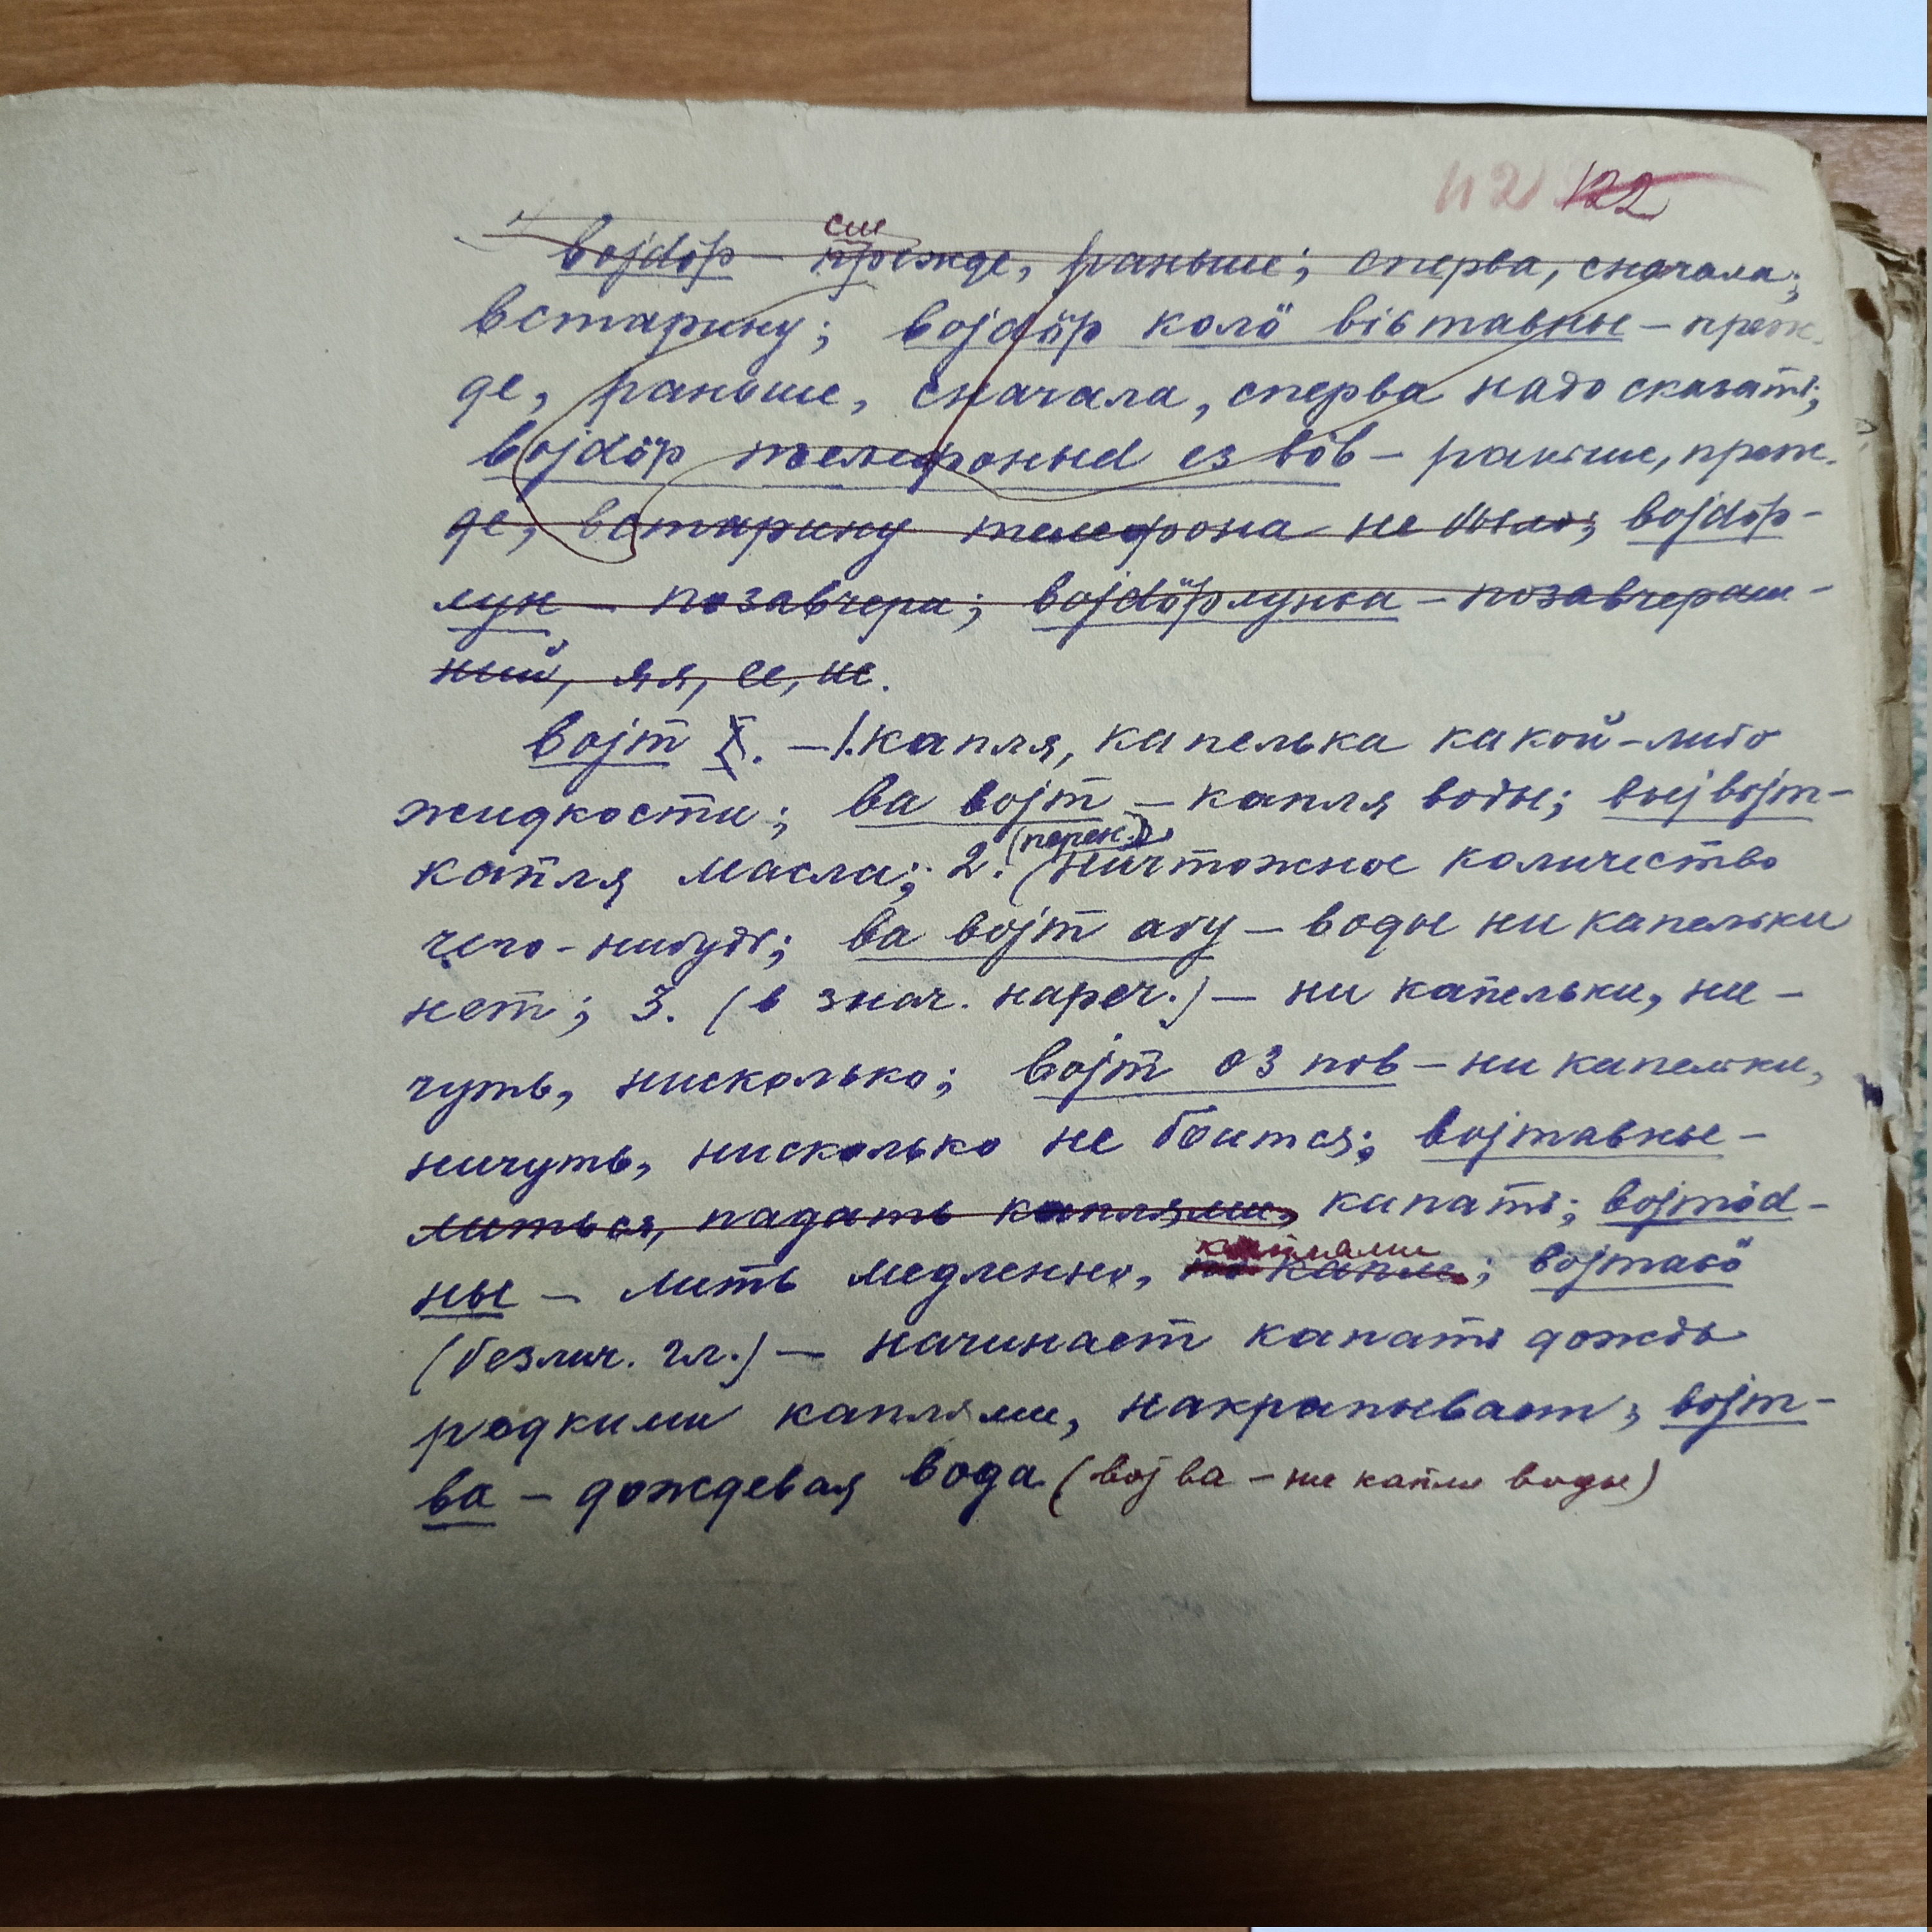 112 122
см
војdöр – прежде, раньше; сперва, сначала;
встарину; војdöр колö віставны – преж-
де, раньше, сначала, сперва надо сказать;
војdöр телефоныd ез вöв – раньше, преж-
де, встарину телефона не было; војdöр-
лун – позавчера; војdöрлунса – позавчераш-
ний, яя, ее, ие.
војт I. – 1. капля, капелька какой-либо
жидкости; ва војт – капля воды; выј војт –
(перен.)
капля масла; 2. (ничтожное количество
чего-нибудь; ва војт абу – воды ни капельки
нет; 3. (в знач. нареч.) – ни капельки, ни-
чуть, нисколько; војт оз пов – ни капельки,
ничуть, нисколько не боится; војтавны –
литься, падать каплями, капать; војтöd-
каплями
ны – лить медленно, по капле; војтасö
(безлич. гл.) – начинает капать дождь
редкими каплями, накрапывает; војт-
ва – дождевая вода (вој ва – ни капли воды)